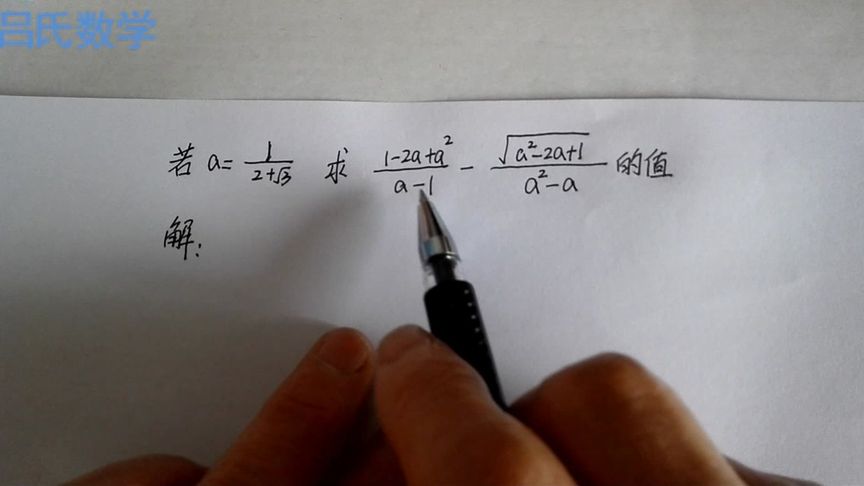 吕氏数学
若 a = 1/(2+√3) 求 (1-2a+a²)/(a-1) - √(a²-2a+1)/(a²-a) 的值
解: